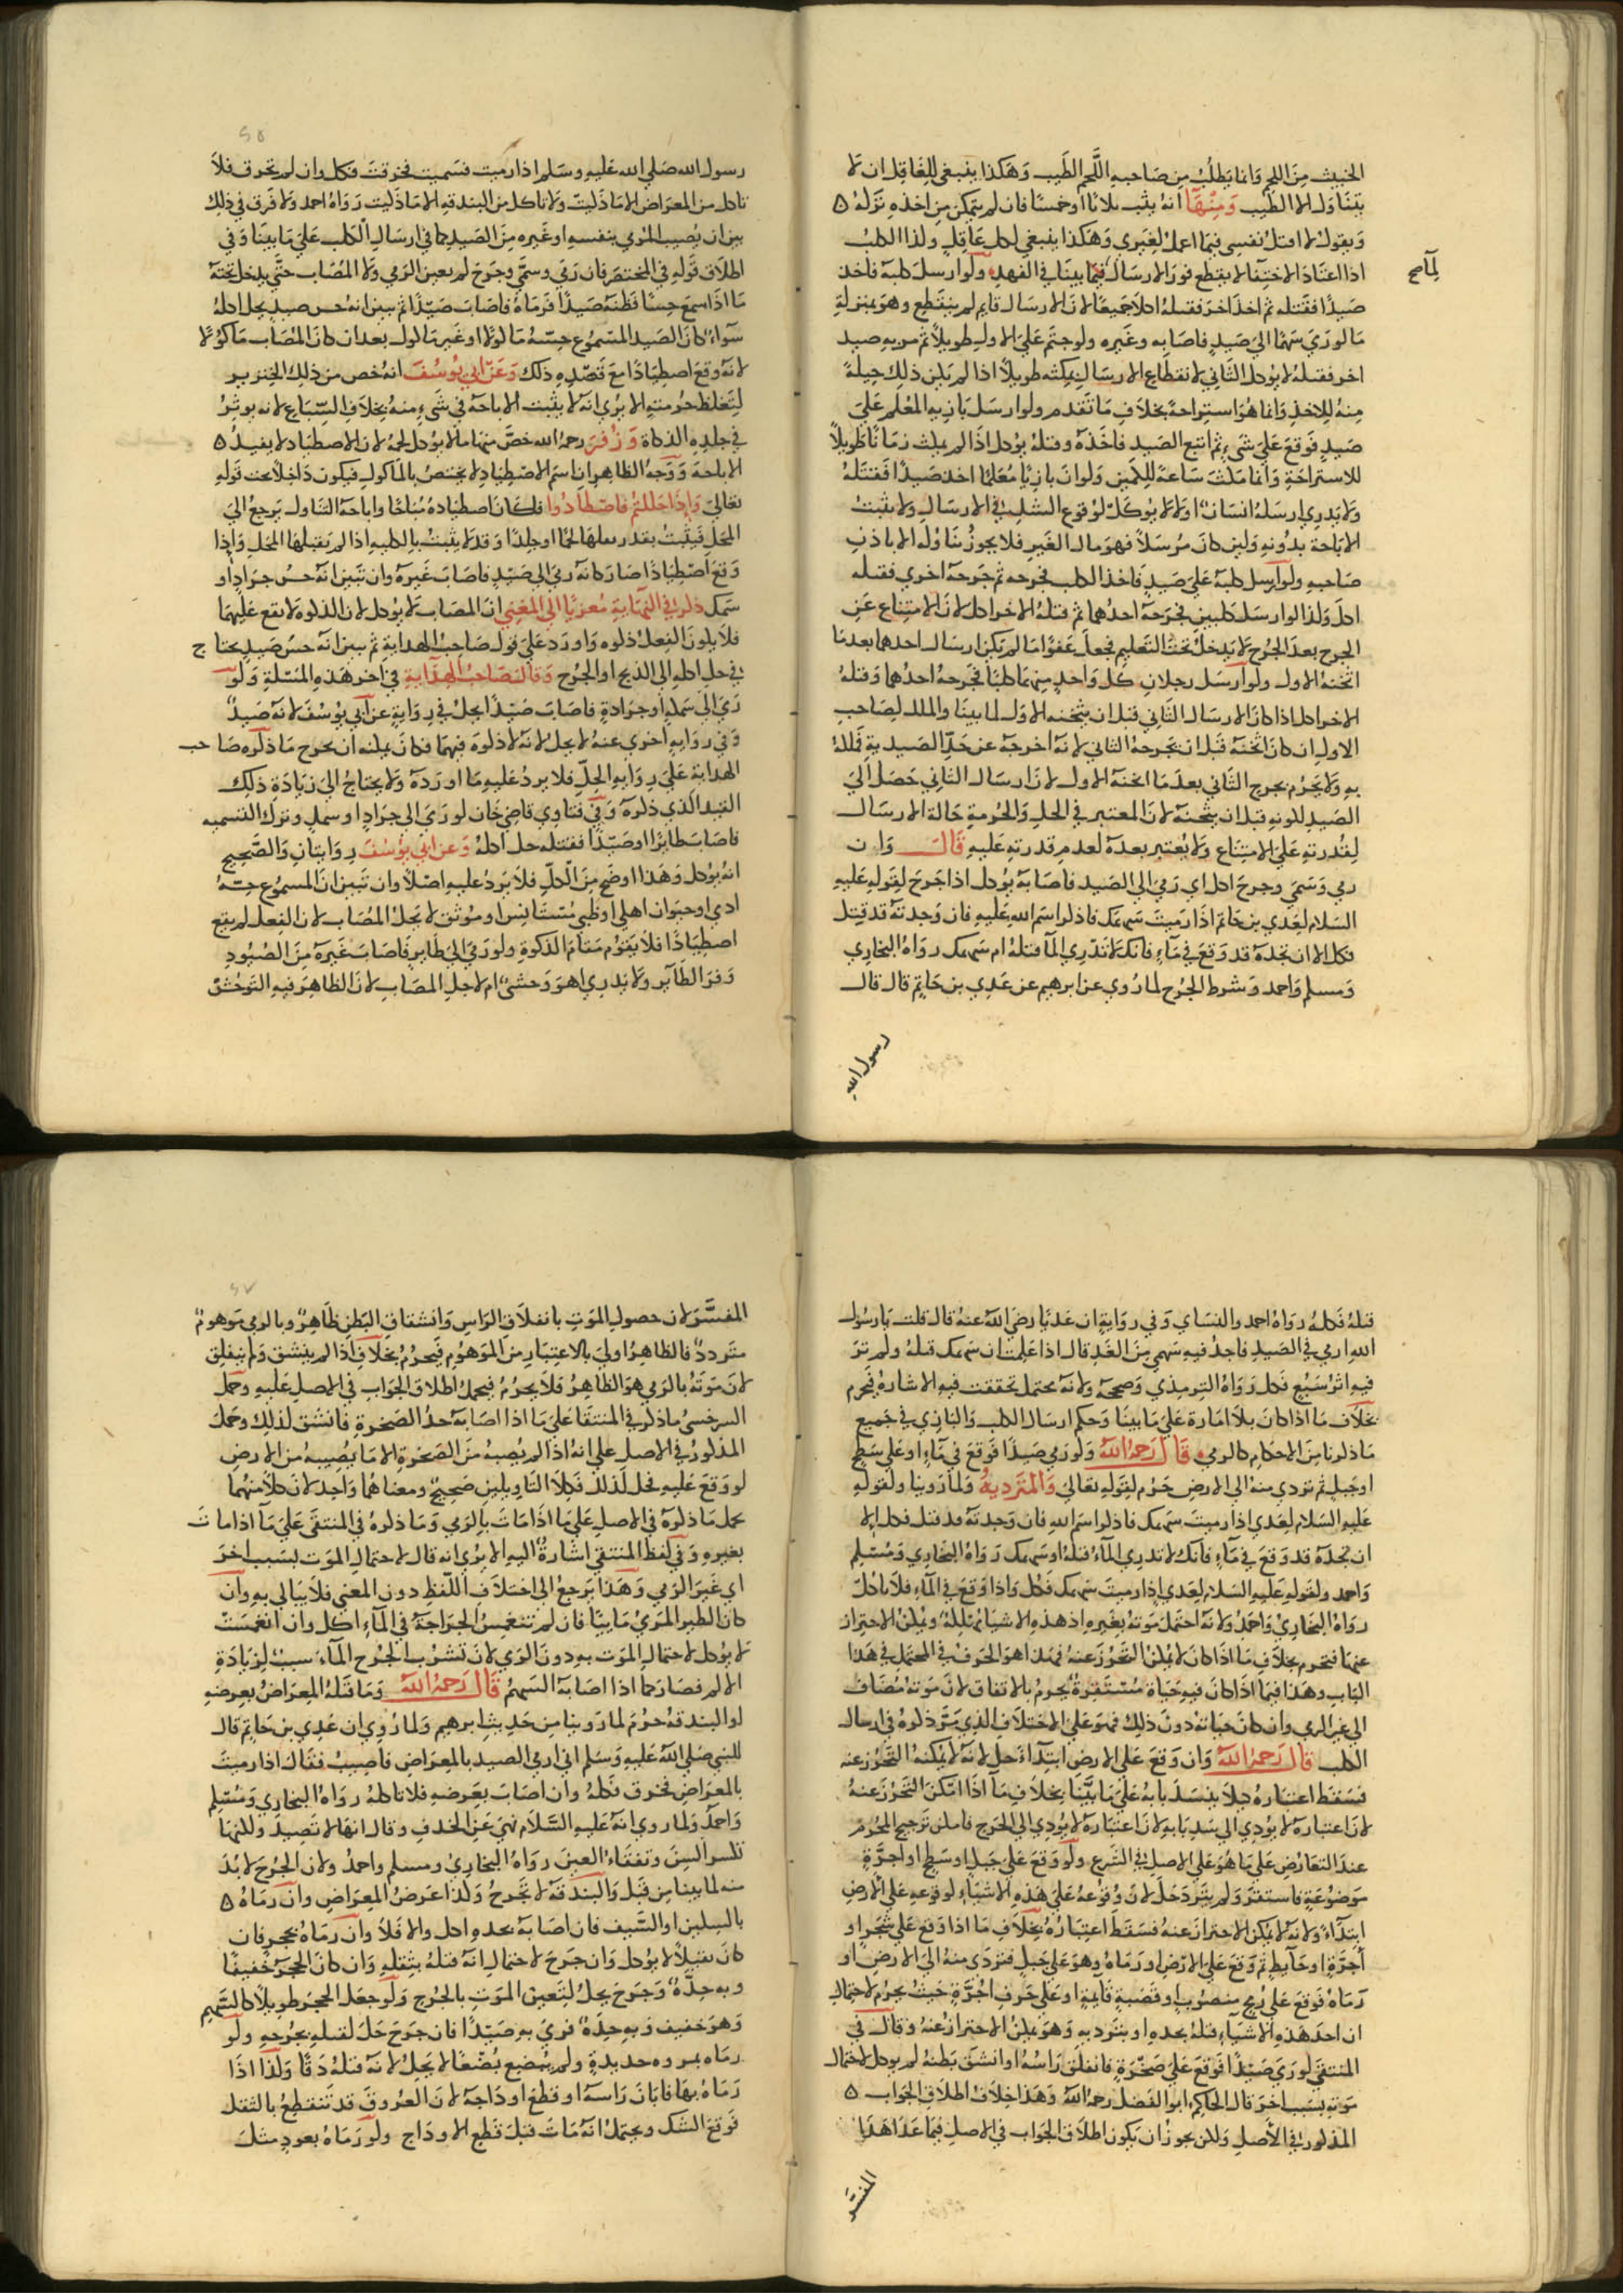 الخبيث من اللحم وانما يطلب من صاحبه اللحم الطيب وهكذا ينبغي للغافل ان لا
يتناول الا الطيب ومنها انه يثب ثلاثا او خمسا فان لم يتمكن من اخذه تركه ه
ويقول لا اقتل نفسي فيما اعمل لغيري وهكذا ينبغي لكل عاقل ولذا الكلب
اذا اعتاد الاختفا لا يقطع فور الارسال لما بينا في الفهد ولو ارسل كلبه فاخذ
صيدا فقتله ثم اخذ اخر فقتله اكلا جميعا لان الارسال قايم لم ينقطع وهو بمنزلة
ما لو رمي سهما الي صيد فاصابه وغيره ولو جثم علي الاول طويلا ثم مر به صيد
اخر فقتله لا يوكل الثاني لانقطاع الارسال بمكثه طويلا اذا لم يكن ذلك حيلة
منه للاخذ وانما هو استراحة بخلاف ما تقدم ولو ارسل بازيه المعلم علي
صيد فوقع علي شيء ثم اتبع الصيد فاخذه وقتله يوكل اذا لم يلبث زمانا طويلا
للاستراحة وانما مكث ساعة للكمين ولو ان بازيا معلما اخذ صيدا فقتله
ولا يدري ارسله انسان او لا لا يوكل لوقوع الشك في الارسال ولا يثبت
الاباحة بدونه ولين كان مرسلا فهو مال الغير فلا يجوز تناوله الا باذن
صاحبه ولو ارسل كلبه علي صيد فاخذ الكلب فجرحه ثم جرحه اخري فقتله
اكل وكذا لو ارسل كلبين فجرحه احدهما ثم قتله الاخر اكل لان الامتناع عن
الجرح بعد الجرح لا يدخل تحت التعليم فجعل عفوا ما لم يكن ارسال احدهما بعدما
اثخنه الاول ولو ارسل رجلان كل واحد منهما كلبا فجرحه احدهما وقتله
الاخر اكل اذا كان الارسال الثاني قبل ان يثخنه الاول لما بينا والملك لصاحب
الاول ان كان اثخنه قبل ان يجرحه الثاني لانه اخرجه عن حد الصيدية فملكه
به ولا يحرم بجرح الثاني بعدما اثخنه الاول لان ارسال الثاني حصل الي
الصيد لكونه قبل ان يثخنه لان المعتبر في الحل والحرمة حالة الارسال
لقدرته علي الامتناع ولا يعتبر بعده لعدم قدرته عليه قال وان
رمي وسمي وجرح اكل اي رمي الي الصيد فاصابه يوكل اذا جرح لقوله عليه
السلام لعدي بن حاتم اذا رميت سهمك فاذكر اسم الله عليه فان وجدته قد قتل
فكل الا ان تجده قد وقع في ماء فانك لا تدري المآ قتله ام سهمك رواه البخاري
ومسلم واحمد وشرط الجرح لما روي عن ابرهيم عن عدي بن حاتم قال قال
رسول الله
رسول الله صلي الله عليه وسلم اذا رميت فسميت فخرقت فكل وان لم تخرق فلا
تاكل من المعراض الا ما ذكيت ولا تاكل من البندقة الا ما ذكيت رواه احمد ولا فرق في ذلك
بين ان يصيب المرمي بنفسه او غيره من الصيد كما في ارسال الكلب علي ما بينا وفي
اطلاق قوله في المختصر فان رمي وسمي وجرح لم يعين الرمي ولا المصاب حتي يدخل تحته
ما اذا سمع حسا فظنه صيدا فرماه فاصاب صيدا ثم تبين انه حس صيد يحل اكله
سوآء كان الصيد المسموع حسه ماكولا او غير ماكول بعد ان كان المصاب ماكولا
لانه وقع اصطيادا مع قصده ذلك وعن ابي يوسف انه خص من ذلك الخنزير
لتغلظ حرمته الا يري انه لا يثبت الاباحة في شيء منه بخلاف السباع لانه يوثر
في جلده الذكاة وزفر رحمه الله خص منها ما لا يوكل لحمه لان الاصطياد لا يفيد ه
الاباحة ووجه الظاهر ان اسم الاصطياد لا يختص بالماكول فيكون داخلا تحت قوله
تعالي واذا حللتم فاصطادوا فكان اصطياده مباحا واباحة التناول يرجع الي
المحل فيثبت بقدر ما يقبله لحما او جلدا وقد لا يثبت بالكلية اذا لم يقبلها المحل واذا
وقع اصطيادا صار كانه رمي الي صيد فاصاب غيره وان تبين انه حس جراد او
سمك ذكر في النهاية معزيا الي المغني ان المصاب لا يوكل لان الذكوة لا يقع عليهما
فلا يكون الفعل ذكوة واورد علي قول صاحب الهداية ثم تبين انه حس صيد يحتاج
في حل اكله الي الذبح او الجرح وقال صاحب الهداية في اخر هذه المسئلة ولو
رمي الي سمكة او جرادة فاصاب صيدا يحل في رواية عن ابي يوسف لانه صيد
وفي رواية اخري عنه لا يحل لانه لا ذكوة فيهما فكان يمكنه ان يخرج ما ذكره صاحب
الهداية علي رواية الحل فلا يرد عليه ما اورده ولا يحتاج الي زيادة ذلك
القيد الذي ذكره وفي فتاوي قاضي خان لو رمي الي جراد او سمك وترك التسميه
فاصاب طائرا او صيدا فقتله حل اكله وعن ابي يوسف روايتان والصحيح
انه يوكل وهذا اوضح من الكل فلا يرد عليه اصلا وان تبين ان المسموع حسه
ادمي او حيوان اهلي او ظبي مستانس او موثق لا يحل المصاب لان الفعل لم يقع
اصطيادا فلا يقوم مقام الذكوة ولو رمي الي طاير فاصاب غيره من الصيود
وفر الطآير ولا يدري اهو وحشي ام لا حل المصاب لان الظاهر فيه التوحش
قتله فكله رواه احمد والنساي وفي رواية ان عديا رضي الله عنه قال قلت يا رسول
الله ارمي في الصيد فاجد فيه سهمي من الغد قال اذا علمت ان سهمك قتله ولم تر
فيه اثر سبع فكل رواه الترمذي وصححه ولانه يحتمل تحققت فيه الامارة فيحرم
بخلاف ما اذا كان بلا امارة علي ما بينا وحكم ارسال الكلب والبازي في جميع
ما ذكرنا من الاحكام كالرمي قال رحمه الله ولو رمي صيدا فوقع في مآء او علي سطح
او جبل ثم تردي منه الي الارض حرم لقوله تعالي والمتردية ولما روينا ولقوله
عليه السلام لعدي اذا رميت سهمك فاذكر اسم الله فان وجدته قد قتل فكل الا
ان تجده قد وقع في مآء فانك لا تدري المآء قتله او سهمك رواه البخاري ومسلم
واحمد ولقوله عليه السلام لعدي اذا رميت سهمك فكل واذا وقع في المآء فلا تاكل
رواه البخاري واحمد ولانه احتمل موته بغيره اذ هذه الاشيا مهلكة ويمكن الاحتراز
عنها فتحرم بخلاف ما اذا كان لا يمكن التحرز عنه فهذا هو الحرف في المحتمل في هذا
الباب وهذا فيما اذا كان فيه حياة مستقرة يحرم بالاتفاق لان موته مضاف
الي غير الرمي وان كان حياته دون ذلك فهو علي الاختلاف الذي مر ذكره في ارسال
الكلب قال رحمه الله وان وقع علي الارض ابتدآء حل لانه لا يمكنه التحرز عنه
فسقط اعتباره كيلا ينسد بابه علي ما بينا بخلاف مآ اذا امكن التحرز عنه
لان اعتباره لا يودي الي سد بابه لان اعتباره لا يودي الي الحرج فامكن ترجيح المحرم
عند التعارض علي ما هو علي الاصل في الشرع ولو وقع علي جبل او سطح او اجرة
موضوعة فاستقر ولم يترد حل لان وقوعه علي هذه الاشياء لوقوعه علي الارض
ابتدآء ولانه لا يمكن الاحتراز عنه فسقط اعتباره بخلاف ما اذا وقع علي شجر او
اجرة او حآيط ثم وقع علي الارض او رماه وهو علي جبل فتردي منه الي الارض او
رماه فوقع علي رمح منصوب او قصبة قايمة او علي حرف اجرة حيث يحرم لاحتمال
ان احد هذه الاشيآء قتله بحده او بترديه وهو يمكن الاحتراز عنه وقال في
المنتقي لو رمي صيدا فوقع علي صخرة فانفلق راسه او انشق بطنه لم يوكل لاحتمال
موته بسبب اخر قال الحاكم ابو الفضل رحمه الله وهذا خلاف اطلاق الجواب ه
المذكور في الاصل ولكن يجوز ان يكون اطلاق الجواب في الاصل فيما عدا هذا
المفسر
المفسر لان حصول الموت بانفلاق الراس وانشقاق البطن ظاهر وبالرمي موهوم
متردد فالظاهر اولي بالاعتبار من الموهوم فيحرم بخلاف اذا لم ينشق ولم ينفلق
لان موته بالرمي هو الظاهر فلا يحرم فيحمل اطلاق الجواب في الاصل عليه وحمل
السرخسي ما ذكر في المنتقا علي ما اذا اصابه حد الصخرة فانشق لذلك وحمل
المذكور في الاصل علي انه اذا لم يصبه من الصخرة الا ما يصيبه من الارض
لو وقع عليه فحل لذلك فكلا التاويلين صحيح ومعناهما واحد لان كلا منهما
يحمل ما ذكره في الاصل علي ما اذا مات بالرمي وما ذكره في المنتقي علي مآ اذا مات
بغيره وفي لفظ المنتقي اشارة اليه الا يري انه قال لاحتمال الموت بسبب اخر
اي غير الرمي وهذا يرجع الي اختلاف اللفظ دون المعني فلا يبالي به وان
كان الطير المرمي ماييا فان لم تنغمس الجراحة في المآء اكل وان انغمست
لا يوكل لاحتمال الموت به دون الرمي لان تشرب الجرح المآء سبب لزيادة
الالم فصار كما اذا اصابه السهم قال رحمه الله وما قتله المعراض بعرضه
او البندقة حرم لما روينا من حديث ابرهيم ولما روي ان عدي بن حاتم قال
للنبي صلي الله عليه وسلم اني ارمي الصيد بالمعراض فاصيب فقال اذا رميت
بالمعراض فخرق فكله وان اصاب بعرضه فلا تاكله رواه البخاري ومسلم
واحمد ولما روي انه عليه السلام نهي عن الخذف وقال انها لا تصيد ولكنها
تكسر السن وتفقاء العين رواه البخاري ومسلم واحمد ولان الجرح لا بد
منه لما بينا من قبل والبندقة لا تجرح وكذا عرض المعراض وان رماه ه
بالسكين او السيف فان اصابه بحده اكل والا فلا وان رماه بحجر فان
كان ثقيلا لا يوكل وان جرح لاحتمال انه قتله بثقله وان كان الحجر خفيفا
وبه حدة وجرح يحل لتعين الموت بالجرح ولو جعل الحجر طويلا كالسهم
وهو خفيف وبه حدة فرمي به صيدا فان جرح حل لقتله بجرحه ولو
رماه بمروه حديدة ولم يبضع بضعا لا يحل لانه قتله دقا وكذا اذا
رماه بها فابان راسه او قطع اوداجه لان العروق قد تنقطع بالثقل
فوقع الشك ويحتمل انه مات قبل قطع الاوداج ولو رماه بعود مثل